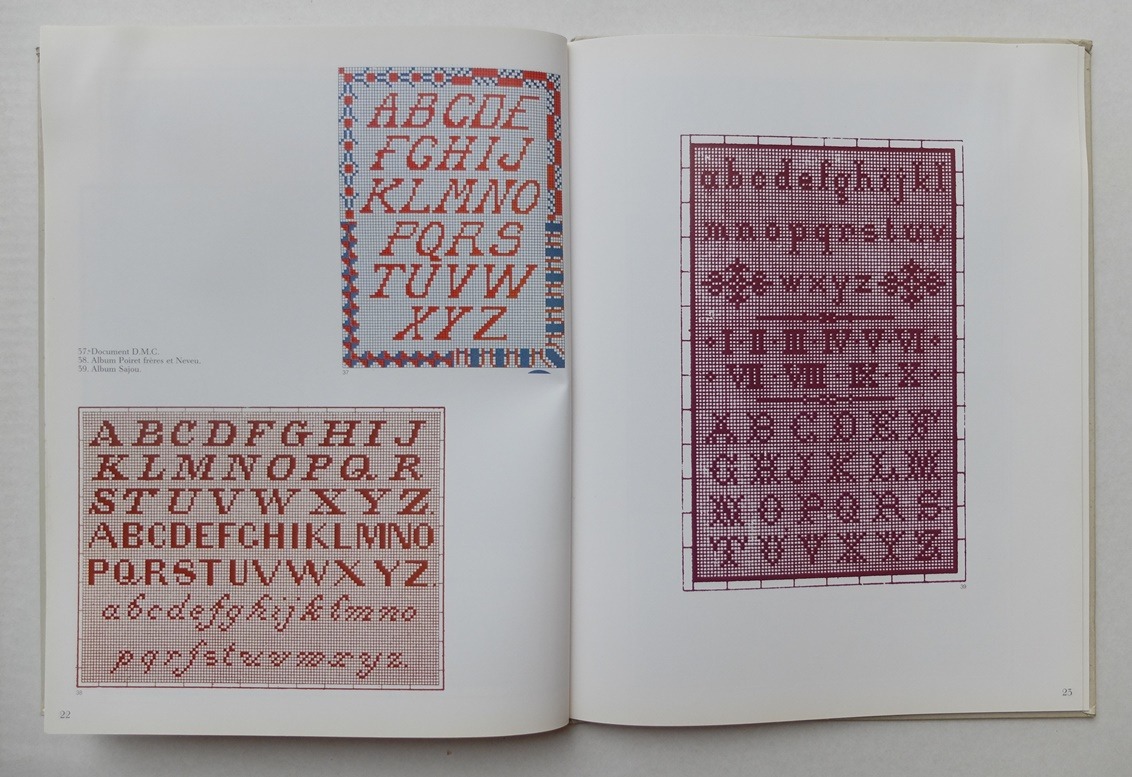 ABCDE
FGHIJ
KLMNO
PQRS
TUVW
XYZ
57
57. Document D.M.C.
58. Album Poiret frères et Neveu.
59. Album Sajou.
ABCDFGHIJ
KLMNOPQR
STUVWXYZ
ABCDEFGHIKLMNO
PQRSTUVWXYZ
abcdefghijklmno
pqrſstuvwxyz.
58
22
abcdefghijkl
mnopqrstuv
wxyz
·I·II·III·IV·V·VI·
·VII·VIII·IX·X·
ABCDEF
GHJKLM
NOPQRS
TUVXYZ
59
23